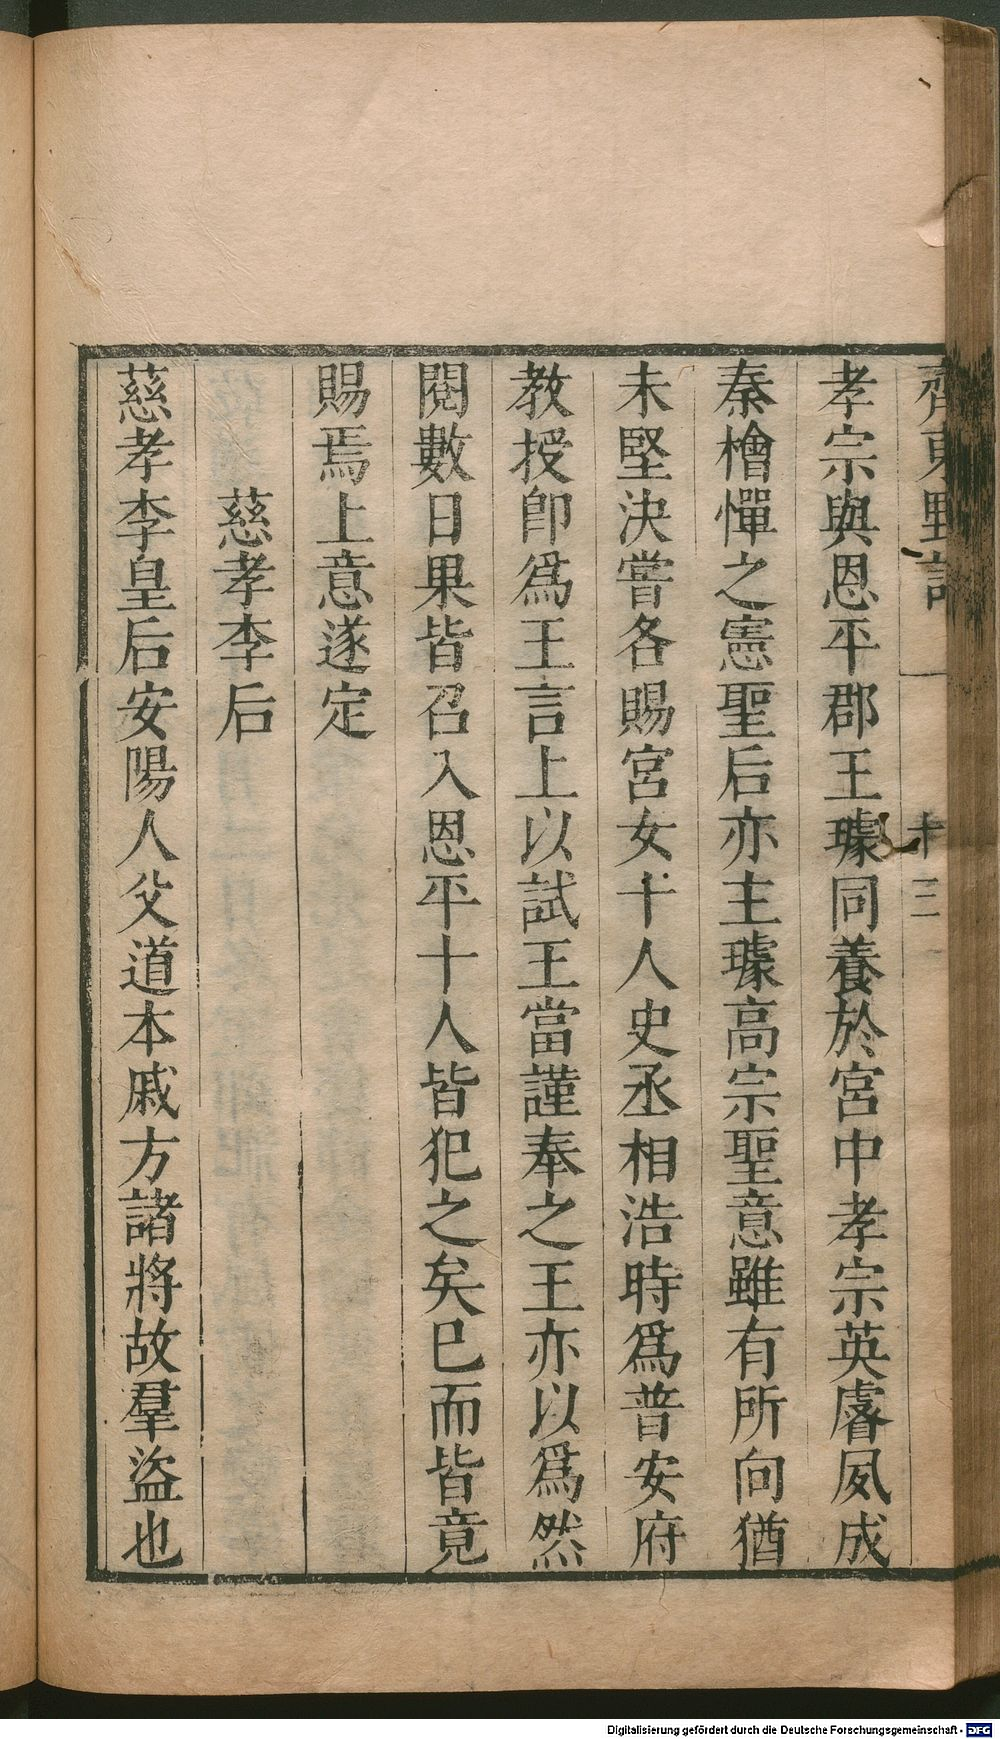 齊東野語 十三
孝宗與恩平郡王璩同養於宮中孝宗英睿夙成
秦檜憚之憲聖后亦主璩高宗聖意雖有所向猶
未堅決嘗各賜宮女十人史丞相浩時爲普安府
教授卽爲王言上以試王當謹奉之王亦以爲然
閱數日果皆召入恩平十人皆犯之矣巳而皆竟
賜焉上意遂定
慈孝李后
慈孝李皇后安陽人父道本戚方諸將故羣盜也
Digitalisierung gefördert durch die Deutsche Forschungsgemeinschaft - DFG